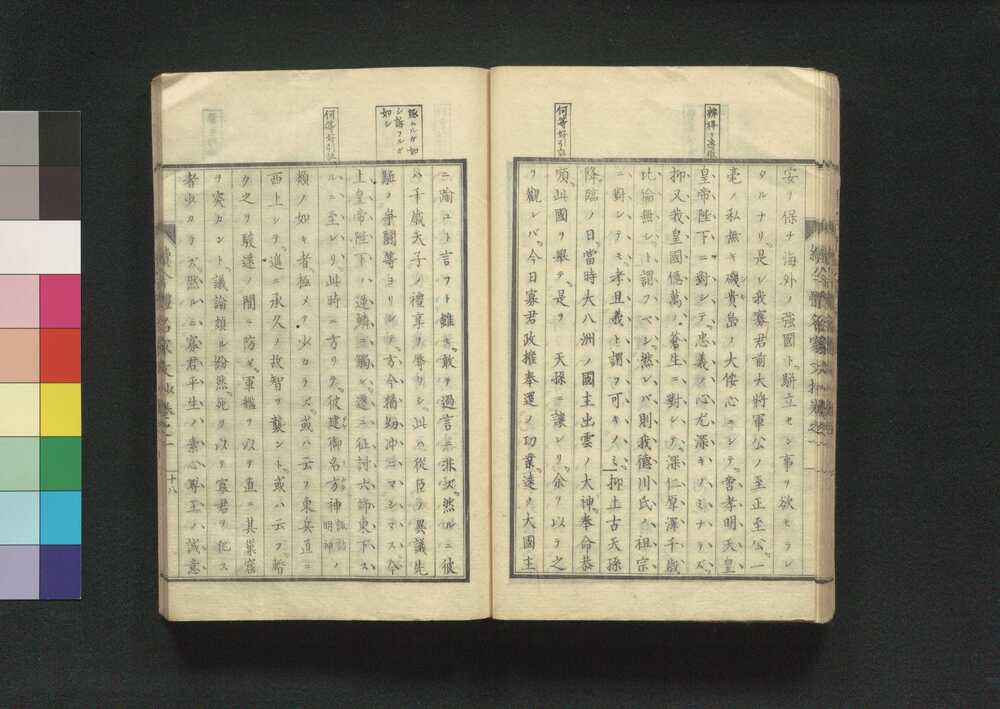 何等好引証
安ヲ保チ海外ノ強國ト駢立セン事ヲ欲セラレ
タルナリ是レ我寡君前大將軍公ノ至正至公一
毫ノ私無キ磯貴島ノ大倭心ニシテ孝明天皇
皇帝陛下ニ對シテ忠義ノ心尤深キノミナラズ
抑又我皇國億萬ノ蒼生ニ對シテ深仁厚澤千歳
比倫無シト謂フベシ然レバ則我德川氏ノ祖宗
ニ對シテモ孝且義ト謂フ可キノミ抑上古天孫
降臨ノ日當時大八洲ノ國主出雲ノ大神奉命恭
順此國ヲ擧テ是ヲ 天孫ニ讓レリ余ヲ以テ之
ヲ觀レバ今日寡君政權奉還ノ功業遠ク大國主
何等好引証
ニ踰ユト言フト雖モ敢テ過言ニ非次然ルニ彼
ハ千歳天子ノ禮享ヲ辱ウシ此ハ從臣ノ異議先
驅ノ爭鬪等ヨリシテ方今猶幼冲ニマシマス今
上皇帝陛下ハ逆鱗ニ觸レ遂ニ征討六師東下ス
ルニ至レリ此時ニ方リテ彼建御名方神諏訪明神ノ
類ノ如キ者極メテ少カラズ或ハ云フ東兵直ニ
西上シテ進ニ承久ノ故智ヲ襲ント或ハ云フ暗
ク之ヲ駿遠ノ間ニ防ギ軍艦ヲ以テ直ニ其巢窟
ヲ突カント議論頗ル紛然死ヲ以テ寡君ヲ
者少カラズ然ルニ寡君平生ハ素心尊王ハ誠意
十八